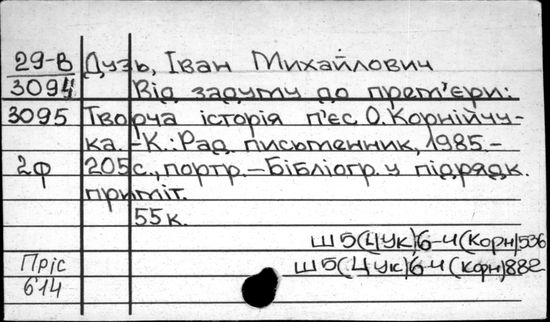 29-В Дузь, Іван Михайлович
3094 Від задуму до прем'єри:
3095 Творча історія п'єс О.Корнійчу-
ка.-К.: Рад. письменник, 1985.-
2ф 205с., портр.-Бібліогр. у підрядк.
приміт.
55к.
Ш5(4Ук)6-4(Корн)536
Пріс Ш5(4Ук)6-4(Корн)882
614